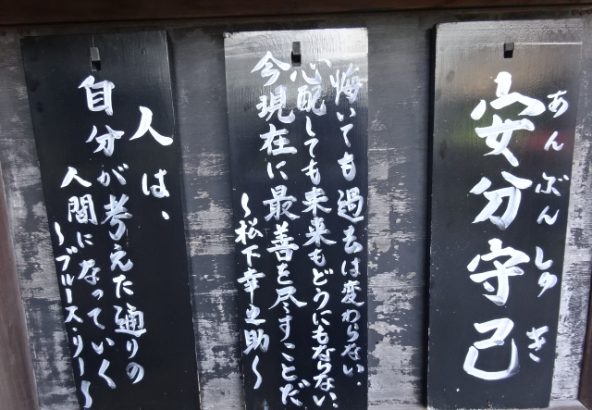 安分守己
あんぶんしゅき
悔いても過去は変わらない。
心配しても未来もどうにもならない、
今現在に最善を尽すことだ
〜松下幸之助〜
人は、
自分が考えた通りの
人間になっていく
〜ブルース・リー〜